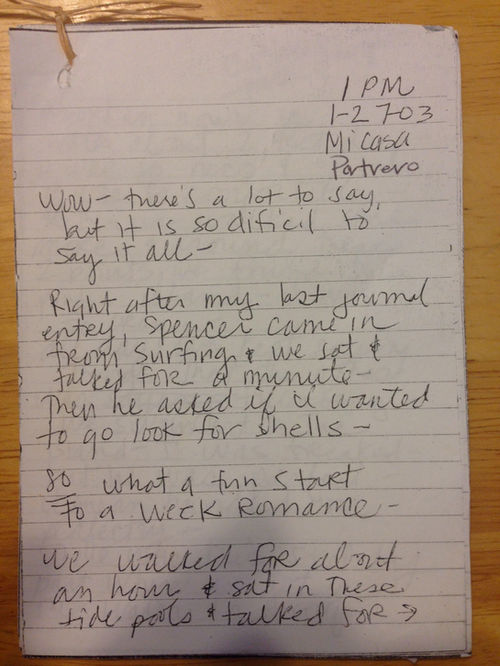 1 PM
1-27-03
Mi casa
Portrero
Wow- there's a lot to say,
but it is so dificil to
say it all-
Right after my last journal
entry, Spencer came in
from surfing & we sat &
talked for a minute-
Then he asked if I wanted
to go look for shells-
so what a fun start
to a week Romance-
we walked for about
an hour & sat in these
tide pools & talked for →